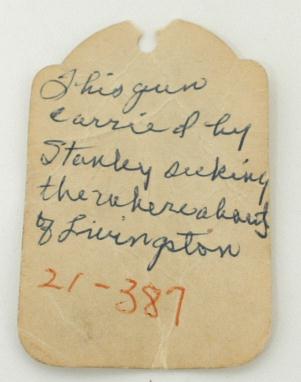 This gun
carried by
Stanley seeking
the whereabouts
of Livingston
21-387